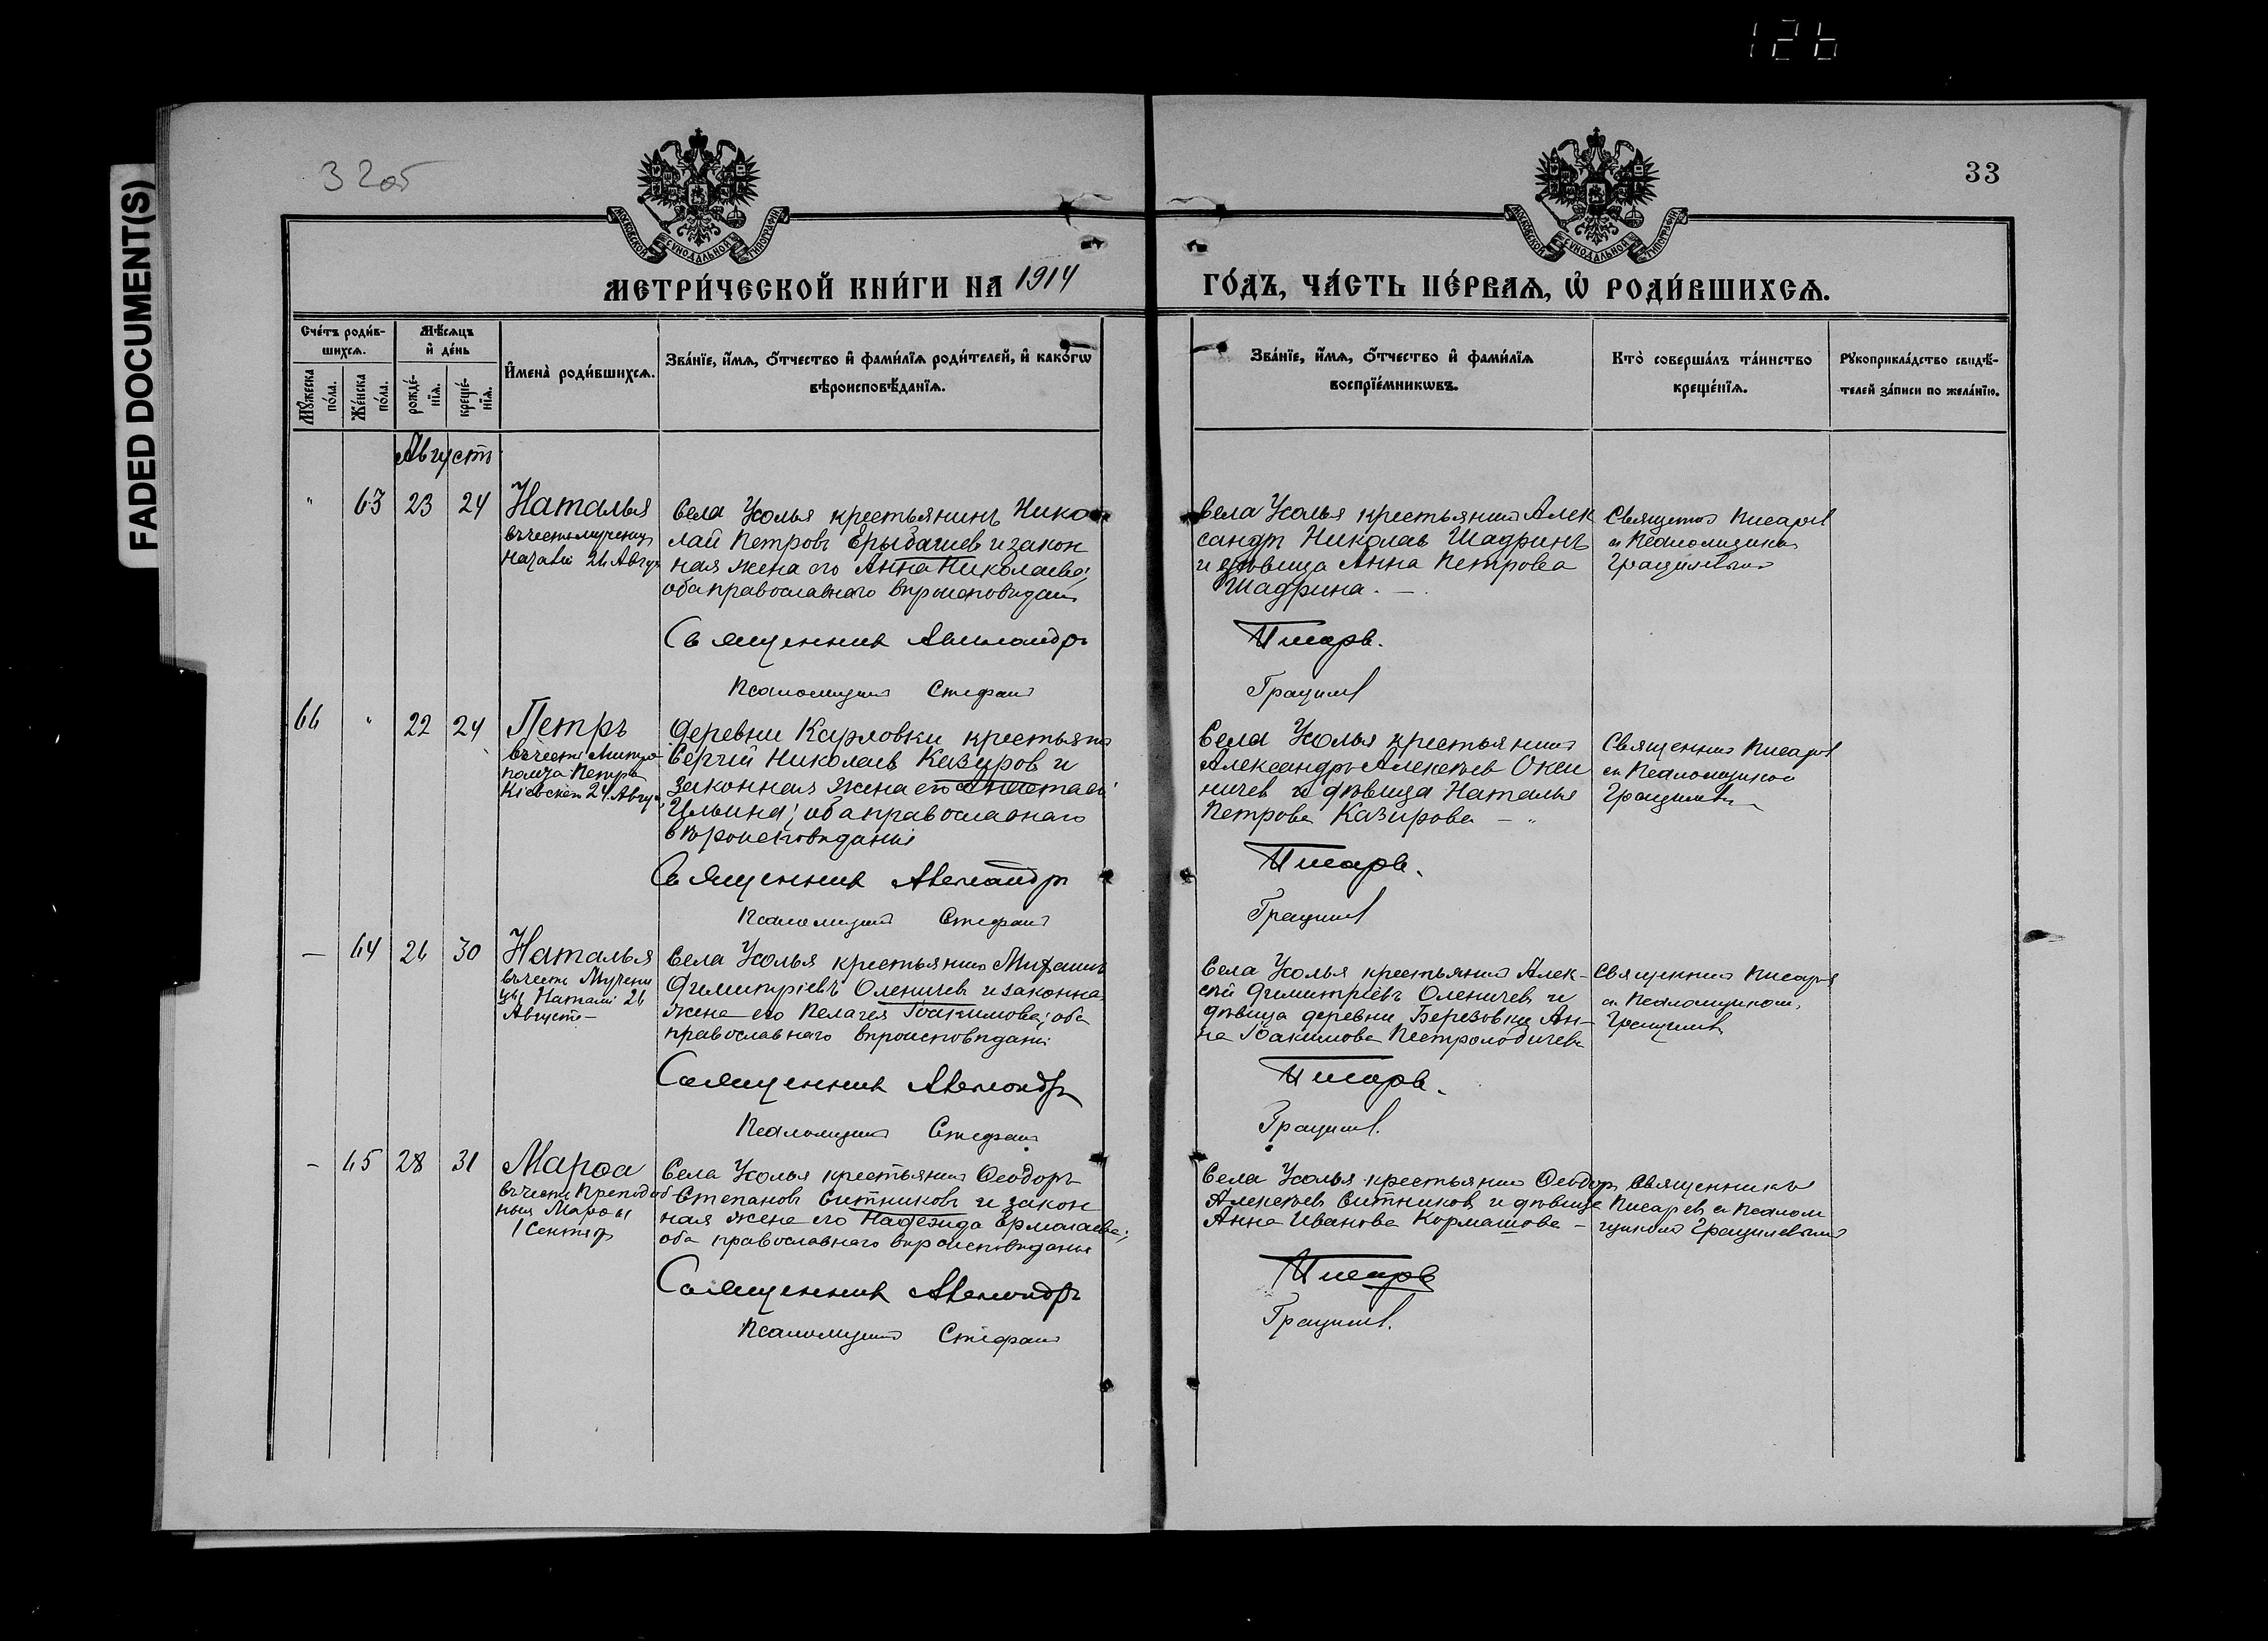 126
FADED DOCUMENT(S)
32об
33
МОСКОВСКОЙ СѴНОДАЛЬНОЙ ТИПОГРАФІИ
МОСКОВСКОЙ СѴНОДАЛЬНОЙ ТИПОГРАФІИ
МЕТРИ́ЧЕСКОЙ КНИ́ГИ НА 1914
ГО́ДЪ, ЧА́СТЬ ПЕ́РВАѦ, Ѡ РОДИ́ВШИХСѦ.
Сче́тъ роди́в-
шихсѧ.
Мѣ́сѧцъ
и҆ де́нь
Мꙋ́жеска
по́ла.
Же́нска
по́ла.
рожде́-
нїѧ.
креще́-
нїѧ.
И҆мена̀ роди́вшихсѧ.
Зва́нїе, и҆́мѧ, ѻ҆́тчество и҆ фами́лїѧ роди́телей, и҆ како́гѡ
вѣроисповѣ́данїѧ.
Зва́нїе, и҆́мѧ, ѻ҆́тчество и҆ фами́лїѧ
воспрїе́мникѡвъ.
Кто̀ соверша́лъ та́инство
креще́нїѧ.
Рꙋкоприкла́дство свидѣ́-
телей за́писи по жела́нїю.
Августъ
" 63 23 24 Наталья
въ честь мучениц
Наталіи 26 Август
Села Усолья крестьянинъ Нико
лай Петровъ и закон
ная жена его Анна Николаева;
оба православнаго вѣроисповѣдан
Священникъ Александръ
Псаломщикъ Стефанъ
Села Усолья крестьянинъ Алек
сандръ Николаевъ Шадринъ
и дѣвица Анна Петрова
Шадрина. —
Писарев.
Грацилев
Священникъ Писарев
съ Псаломщикомъ
Грацилевымъ
66 " 22 24 Петръ
въ честь Митро-
полита Петра
Кіевскаго 24 Август
Деревни Карловки крестьянинъ
Сергій Николаевъ Казыров и
законная жена его Анастасія
Ильина; оба православнаго
вѣроисповѣданія
Священникъ Александръ
Псаломщикъ Стефанъ
Села Усолья крестьянинъ
Александръ Алексѣевъ
и дѣвица Наталья
Петрова Казырова — "
Писарев.
Грацилев
Священникъ Писарев
съ Псаломщикомъ
Грацилевымъ
— 64 26 30 Наталья
въ честь Мучени
цы Наталіи 26
Августа —
Села Усолья крестьянинъ Михаилъ
Димитріевъ Оленичев и законная
жена его Пелагея Іоакимова; оба
православнаго вѣроисповѣданія
Священникъ Александръ
Псаломщикъ Стефанъ
Села Усолья крестьянинъ Алек-
сѣй Димитріевъ Оленичев и
дѣвица деревни Березовки Ан-
на Іоакимова
Писарев.
Грацилев.
Священникъ Писарев
съ Псаломщикомъ
Грацилевымъ
— 65 28 31 Марѳа
въ честь Преподоб-
ныя Марѳы
1 Сентяб
Села Усолья крестьянинъ Ѳеодоръ
Степановъ Ситниковъ и закон
ная жена его Надежда Ермолаева;
оба православнаго вѣроисповѣданія
Священникъ Александръ
Псаломщикъ Стефанъ
Села Усолья крестьянинъ Ѳеодоръ
Алексѣевъ Ситников и дѣвица
Анна Иванова Кормашова —
Писарев
Грацилев.
Священникъ
Писарев съ Псалом
щикомъ Грацилевымъ